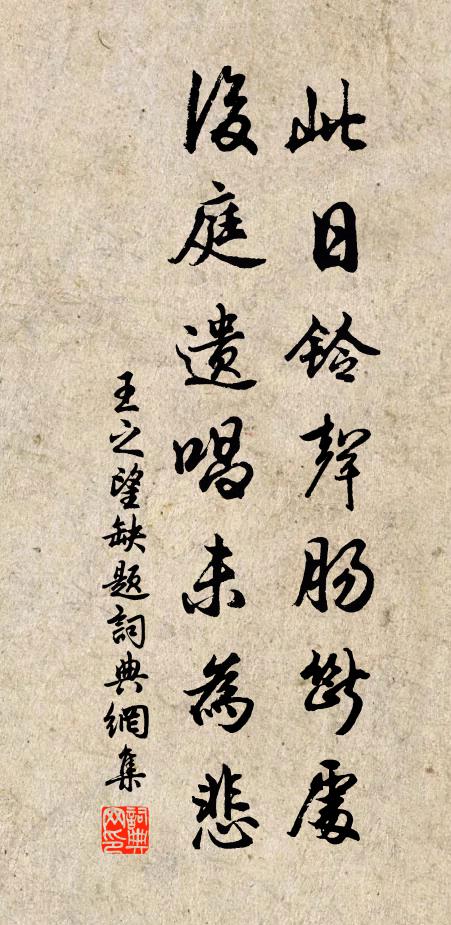 此日鈴聲腸斷處
後庭遺唱未為悲
王之望缺題詞典網集
詞典
网印